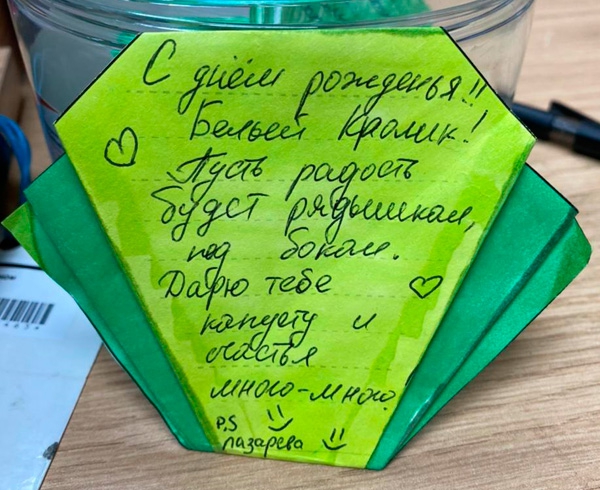 С днём рожденья!!
Белый Кролик!
Пусть радость
будет рядышком,
под боком.
Дарю тебе
капусту и
счастья
много-много.
P.S
Лазарева